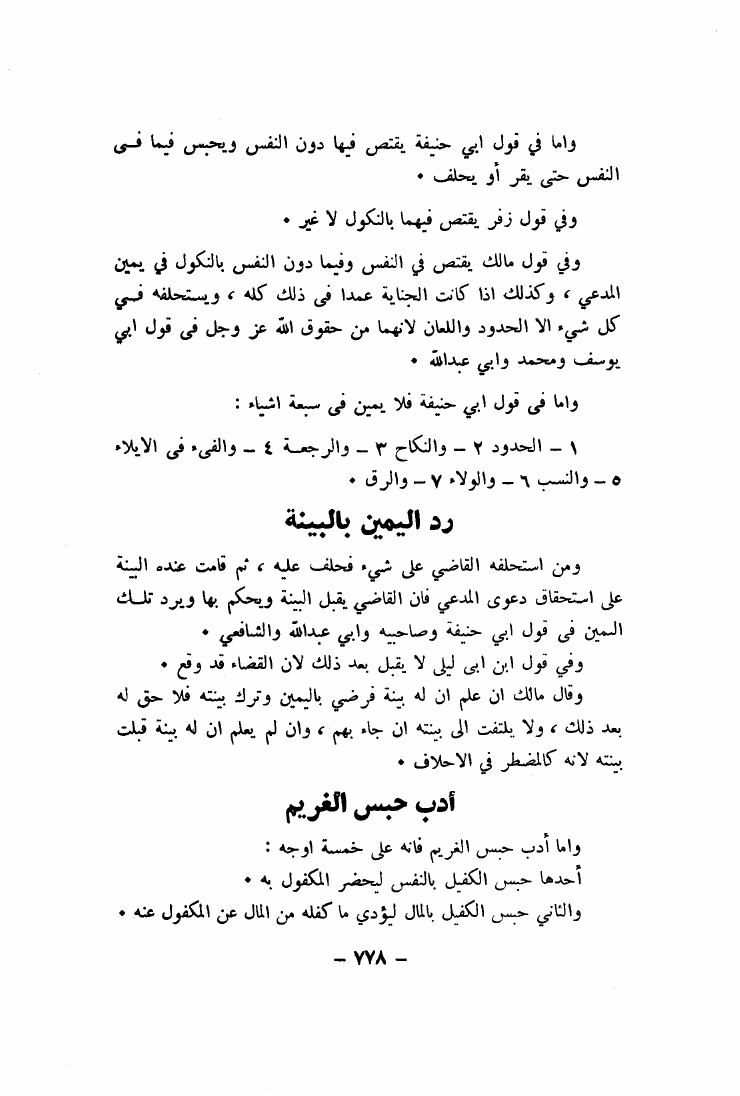 واما في قول ابي حنيفة يقتص فيها دون النفس ويحبس فيما فى
النفس حتى يقر أو يحلف ٠
وفي قول زفر يقتص فيهما بالنكول لا غير ٠
وفي قول مالك يقتص في النفس وفيما دون النفس بالنكول في يمين
المدعي ، وكذلك اذا كانت الجناية عمدا فى ذلك كله ، ويستحلفه في
كل شيء الا الحدود واللعان لانهما من حقوق الله عز وجل فى قول ابي
يوسف ومحمد وابي عبدالله ٠
واما فى قول ابي حنيفة فلا يمين فى سبعة اشياء :
١ – الحدود ٢ – والنكاح ٣ – والرجعة ٤ – والفىء فى الايلاء
٥ – والنسب ٦ – والولاء ٧ – والرق ٠
رد اليمين بالبينة
ومن استحلفه القاضي على شيء فحلف عليه ، ثم قامت عنده البينة
على استحقاق دعوى المدعي فان القاضي يقبل البينة ويحكم بها ويرد تلك
اليمين فى قول ابي حنيفة وصاحبيه وابي عبدالله والشافعي ٠
وفي قول ابن ابى ليلى لا يقبل بعد ذلك لان القضاء قد وقع ٠
وقال مالك ان علم ان له بينة فرضي باليمين وترك بينته فلا حق له
بعد ذلك ، ولا يلتفت الى بينته ان جاء بهم ، وان لم يعلم ان له بينة قبلت
بينته لانه كالمضطر في الاحلاف ٠
أدب حبس الغريم
واما أدب حبس الغريم فانه على خمسة اوجه :
أحدها حبس الكفيل بالنفس ليحضر المكفول به ٠
والثاني حبس الكفيل بالمال ليؤدي ما كفله من المال عن المكفول عنه ٠
– ٧٧٨ –